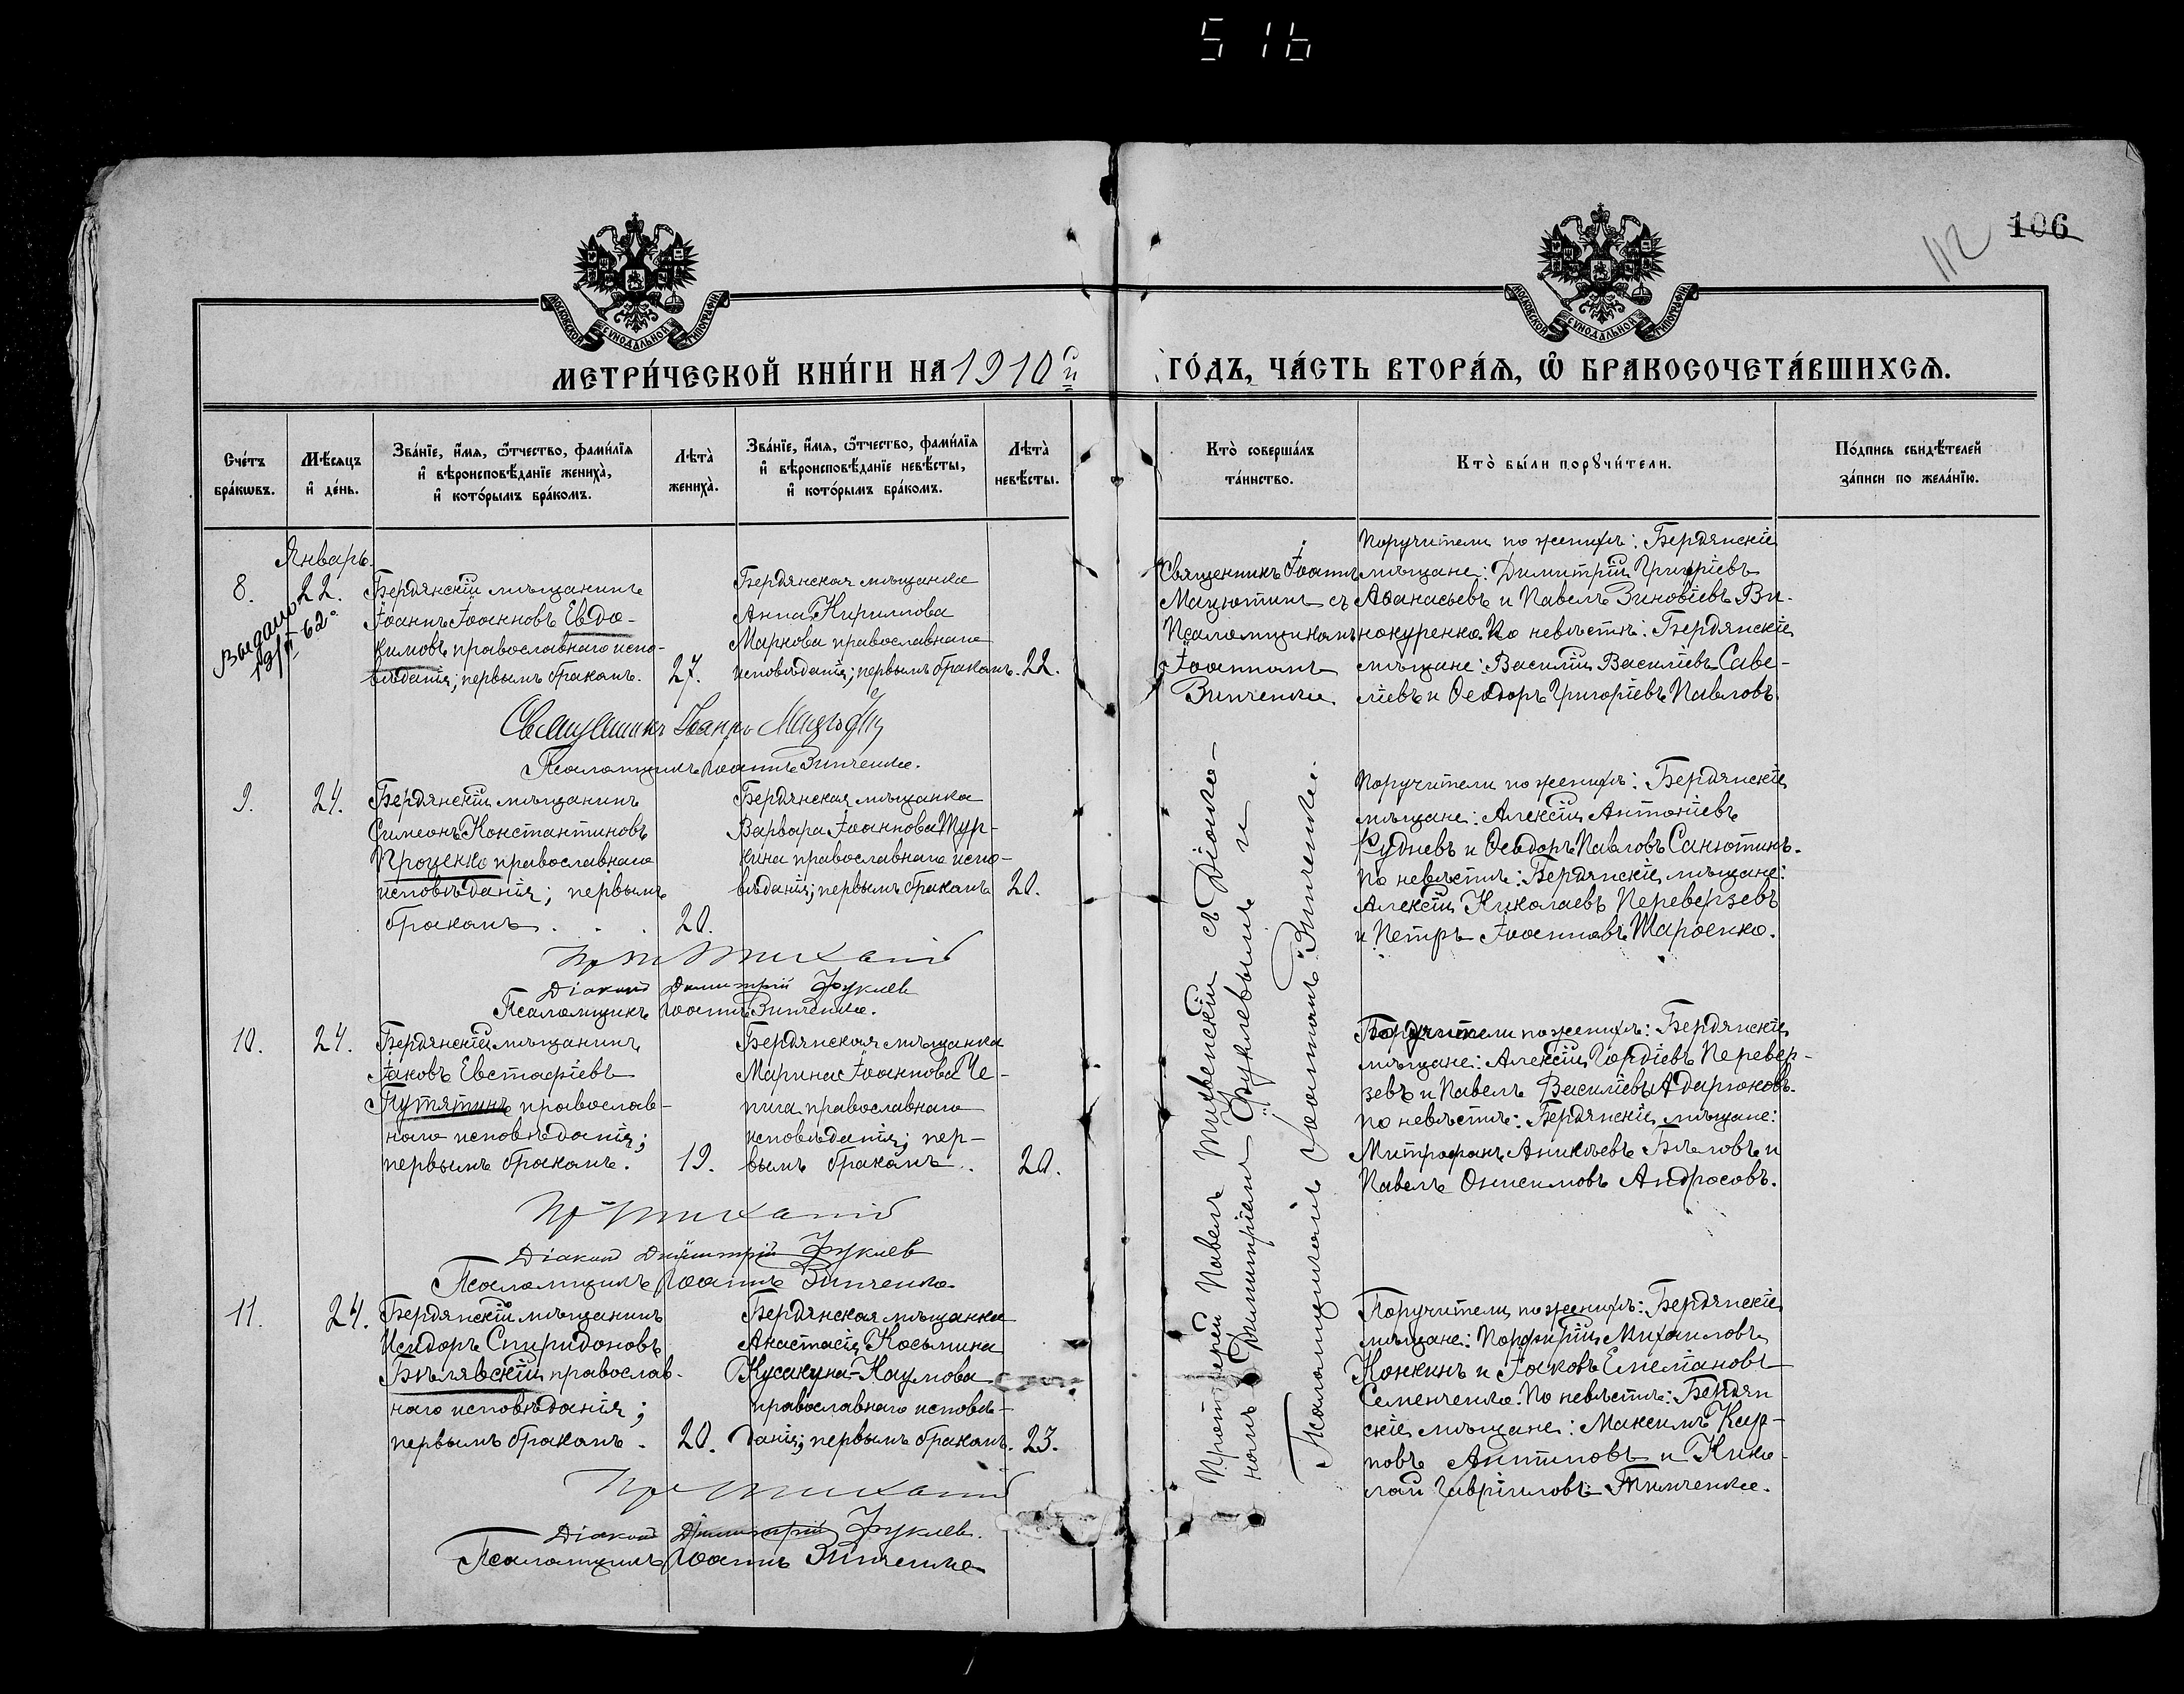 516
106
112
МОСКОВСКОЙ СѴНОДАЛЬНОЙ ТИПОГРАФІИ
МОСКОВСКОЙ СѴНОДАЛЬНОЙ ТИПОГРАФІИ
МЕТРИ́ЧЕСКОЙ КНИ́ГИ НА 1910й
ГО́ДЪ, ЧА́СТЬ ВТОРА́Ѧ, Ѿ БРАКОСОЧЕТА́ВШИХСѦ.
Сче́тъ бра́кѡвъ.
Мѣ́сяцъ и҆ де́нь.
Зва́нїе, и҆́мѧ, ѻ҆́тчество, фами́лїѧ
и҆ вѣроисповѣ́данїе жениха̀,
и҆ кото́рымъ бра́комъ.
Лѣ́та̀ жениха̀.
Зва́нїе, и҆́мѧ, ѻ҆́тчество, фами́лїѧ
и҆ вѣроисповѣ́данїе невѣ́сты,
и҆ кото́рымъ бра́комъ.
Лѣ́та̀ невѣ́сты.
Кто̀ соверша́лъ
та́инство.
Кто̀ бы́ли порꙋчи́тели.
По́дпись свидѣ́телей
за́писи по жела́нїю.
Январь.
8.
22.
Выдано
Бердянскій мѣщанинъ
Іоаннъ Іоанновъ Евдо-
кимовъ православнаго испо-
вѣданія; первымъ бракомъ.
27.
Бердянская мѣщанка
Анна Кирилова
Маркова православнаго
исповѣданія; первымъ бракомъ.
22.
Священникъ Іоаннъ
Мацютинъ съ
Псаломщикомъ
Іоанномъ
Зинченко
Поручители по женихѣ: Бердянскіе
мѣщане: Димитрій Григоріевъ
Аѳанасьевъ и Павелъ Зиновіевъ Ви-
нокуренко. По невѣстѣ: Бердянскіе
мѣщане: Василій Василіевъ Саве-
ліевъ и Ѳеодоръ Григоріевъ Павловъ.
Священникъ Іоаннъ Мацютинъ
Псаломщикъ Іоаннъ Зинченко.
9.
24.
Бердянскій мѣщанинъ
Симеонъ Константиновъ
Проценко православнаго
исповѣданія; первымъ
бракомъ.
20.
Бердянская мѣщанка
Варвара Іоаннова Тур-
кина православнаго испо-
вѣданія; первымъ бракомъ
20.
Поручители по женихѣ: Бердянскіе
мѣщане: Алексій Антоніевъ
Рудневъ и Ѳеодоръ Павловъ Санютинъ.
По невѣстѣ: Бердянскіе мѣщане:
Алексій Николаевъ Переверзевъ
и Петръ Іоанновъ
Діаконъ Димитрій Фуклев
Псаломщикъ Іоаннъ Зинченко.
10.
24.
Бердянскій мѣщанинъ
Іаковъ Евстафіевъ
Путятинъ православ-
наго исповѣданія;
первымъ бракомъ.
19.
Бердянская мѣщанка
Марина Іоаннова Че-
пига православнаго
исповѣданія; пер-
вымъ бракомъ..
20.
Протоіерей Павелъ Тихвенскій съ Діако-
номъ Димитріемъ Фуклевымъ и
Псаломщикомъ Іоанномъ Зинченко.
Поручители по женихѣ: Бердянскіе
мѣщане: Алексій Гордіевъ Перевер-
зевъ и Павелъ Василіевъ Адарюковъ.
По невѣстѣ: Бердянскіе мѣщане:
Митрофанъ Аникіевъ Бѣловъ и
Павелъ Онисимовъ Андросовъ.
Діаконъ Димитрій Фуклев
Псаломщикъ Іоаннъ Зинченко.
11.
24.
Бердянскій мѣщанинъ
Исидоръ Спиридоновъ
Бѣлявскій православ-
наго исповѣданія;
первымъ бракомъ.
20.
Бердянская мѣщанка
Анастасія Косьмина
Кусакина-Наумова
православнаго исповѣ-
данія; первымъ бракомъ.
23.
Поручители по женихѣ: Бердянскіе
мѣщане: Порфирій Михаиловъ
Конкинъ и Іаковъ Емеліановъ
Семенченко. По невѣстѣ: Бердян
скіе мѣщане: Максимъ Кар-
повъ Антиповъ и Нико-
лай Гавріиловъ Тимченко.
Діаконъ Димитрій Фуклев.
Псаломщикъ Іоаннъ Зинченко